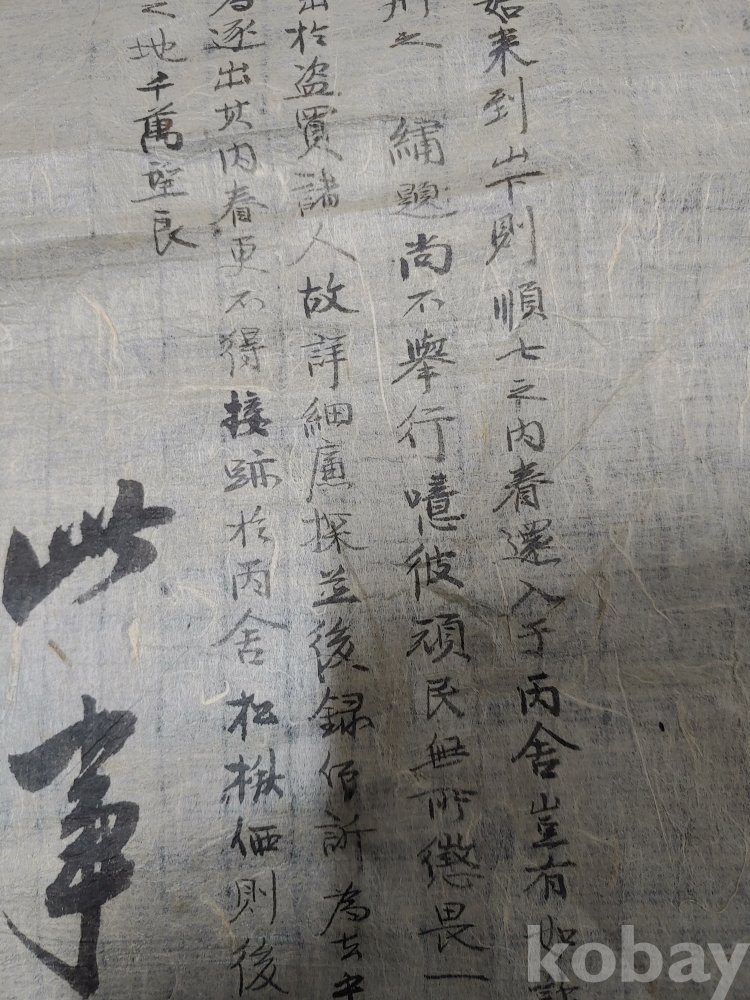 如来到山下則順七之内眷還入于丙舍豈有如
之 繡題尚不擧行噫彼頑民無所懲畏一
出於盜買諸人故詳細廉探並後錄仰訴 為去乎
逐出其内眷更不得接跡於丙舍松楸価則後
之地千萬望良
此事
kobay